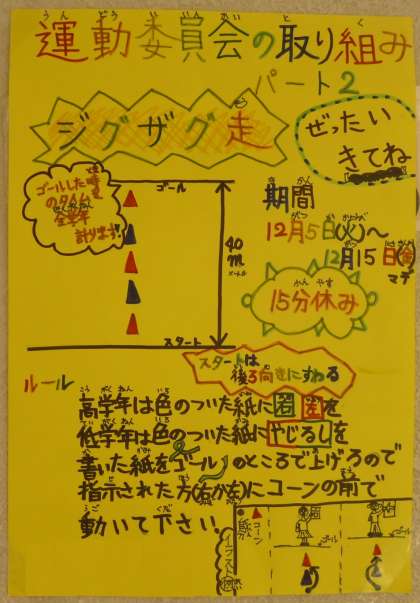 運動委員会の取り組み
パート2
ジグザグ走
ぜったい
きてね
ゴールした時
のタイム
全学年
計ります!
ゴール
40
m
メートル
スタート
期間
12月5日(火)〜
12月15日(金)
マデ
15分休み
スタートは
後ろ向きにすわる
ルール
高学年は色のついた紙に右左を
低学年は色のついた紙にやじるしを
書いた紙をゴールのところで上げるので
指示された方(右か左)にコーンの前で
動いて下さい。
コーン
ゴール
ゴール